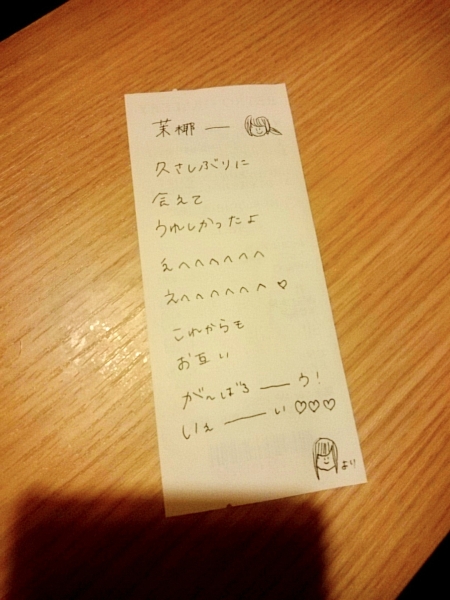 茉椰――
久さしぶりに
会えて
うれしかったよ
えへへへへへへ
えへへへへへへ♡
これからも
お互い
がんばろ――う!
いぇ――い♡♡♡
より